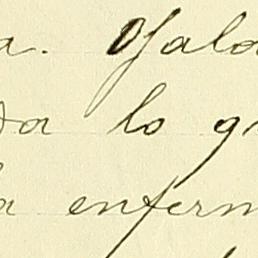 a. Ojalá
da lo gr
la enferm